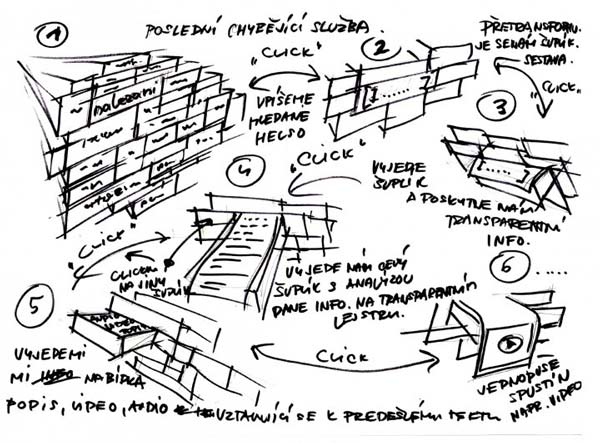 POSLEDNÍ CHYBĚJÍCÍ SLUŽBA.
1
"CLICK"
VPÍŠEME
HLEDANÉ
HESLO
2
[.....]
PŘETRANSFORM.
JE SEZNAM ŠUPLÍK.
SESTAVA.
"CLICK"
3
VYJEDE
ŠUPLÍK
A POSKYTNE NÁM
TRANSPARENTNÍ
INFO.
"CLICK"
4
VYJEDE NÁM CELÝ
ŠUPLÍK S ANALÝZOU
DANÉ INFO. NA TRANSPARENTNÍM
"CLICK"
CLICKEM
NA JINÝ
ŠUPLÍK
5
AUDIO
VIDEO
VYJEDE MI
MI NABÍDKA
POPIS, VIDEO, AUDIO VZTAHUJÍCÍ SE K PŘEDEŠLÉMU TEXTU
CLICK
6 .....
JEDNODUŠE
SPUSTÍM
NAPŘ. VIDEO